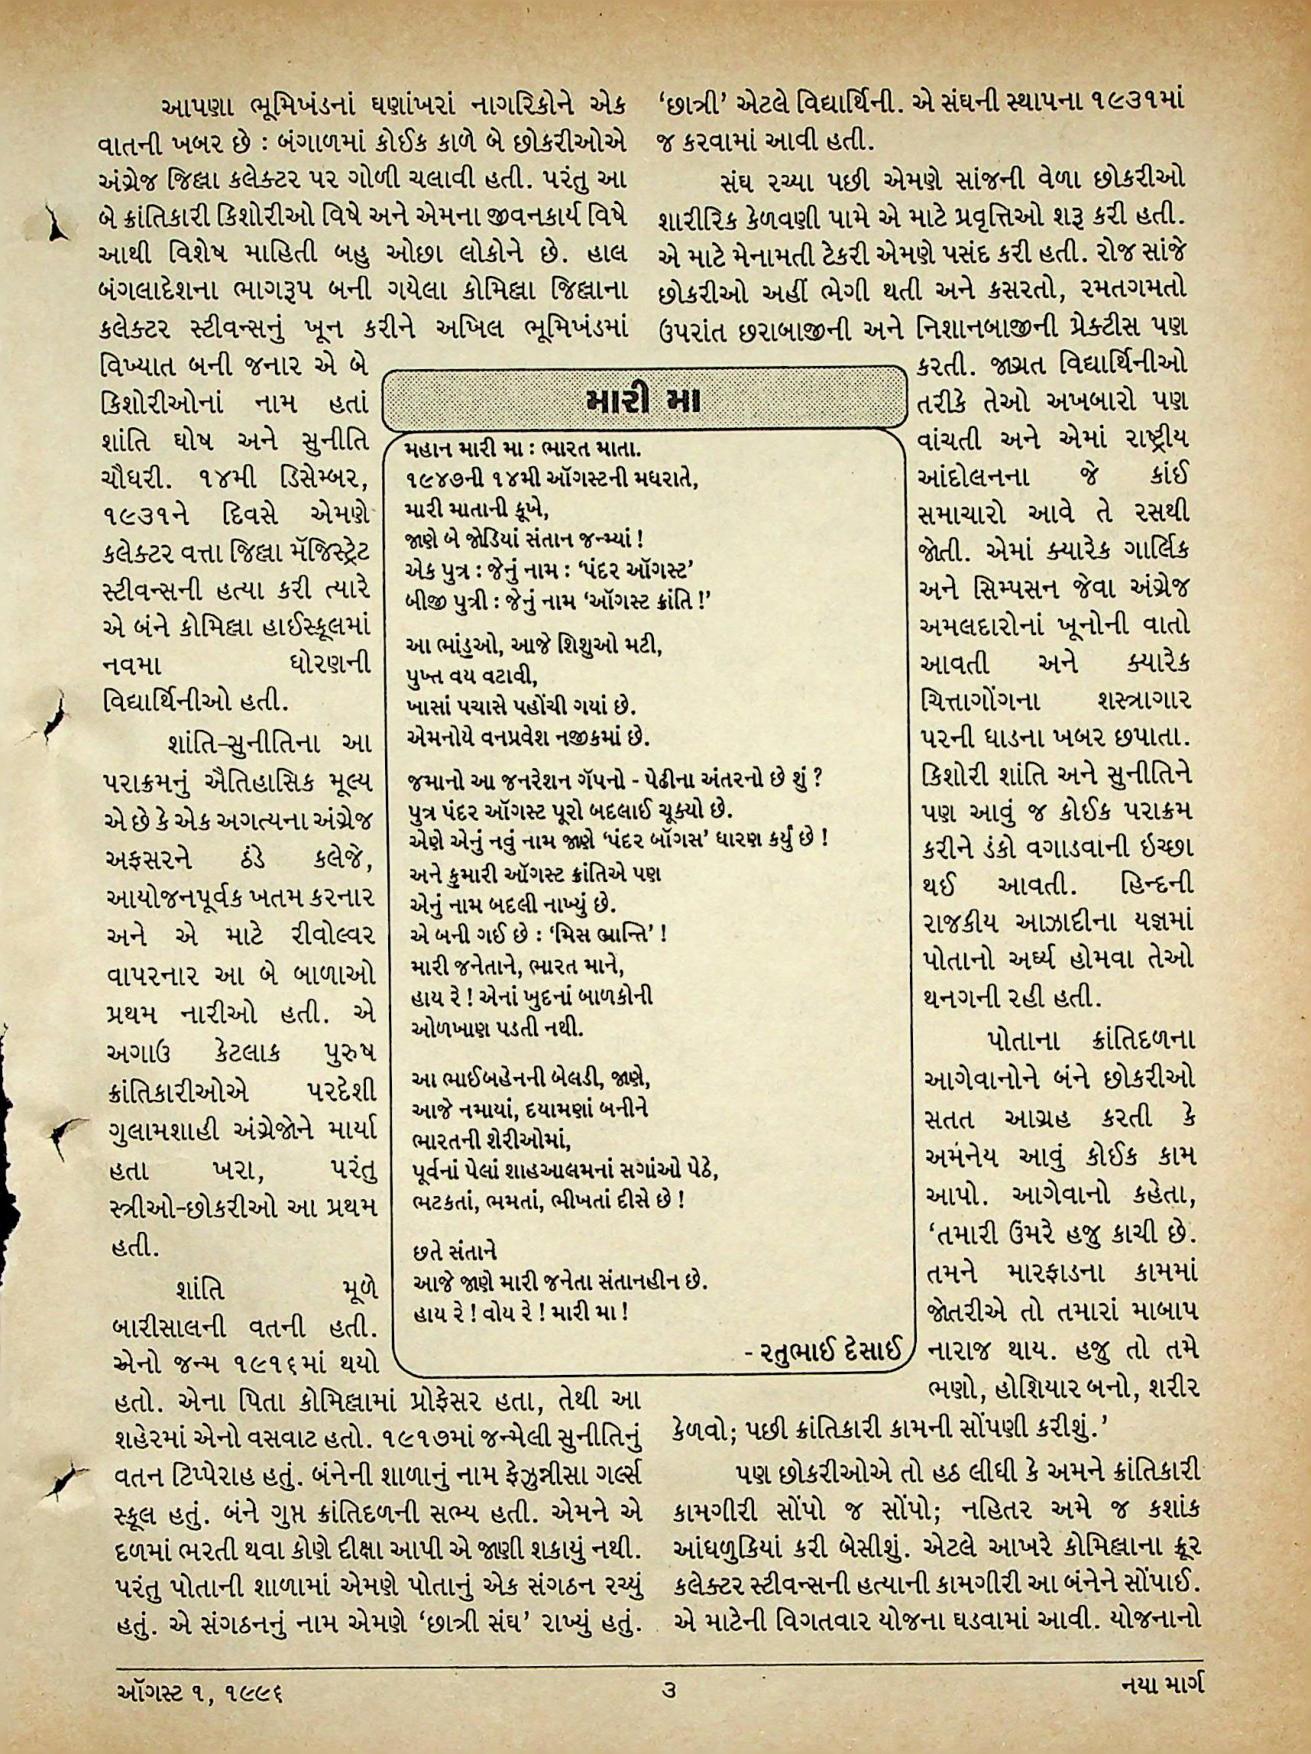 આપણા ભૂમિખંડનાં ઘણાંખરાં નાગરિકોને એક
વાતની ખબર છે : બંગાળમાં કોઈક કાળે બે છોકરીઓએ
અંગ્રેજ જિલ્લા કલેક્ટર પર ગોળી ચલાવી હતી. પરંતુ આ
બે ક્રાંતિકારી કિશોરીઓ વિષે અને એમના જીવનકાર્ય વિષે
આથી વિશેષ માહિતી બહુ ઓછા લોકોને છે. હાલ
બંગલાદેશના ભાગરૂપ બની ગયેલા કોમિલ્લા જિલ્લાના
કલેક્ટર સ્ટીવન્સનું ખૂન કરીને અખિલ ભૂમિખંડમાં
વિખ્યાત બની જનાર એ બે
કિશોરીઓનાં નામ હતાં
શાંતિ ઘોષ અને સુનીતિ
ચૌધરી. ૧૪મી ડિસેમ્બર,
૧૯૩૧ને દિવસે એમણે
કલેક્ટર વત્તા જિલ્લા મૅજિસ્ટ્રેટ
સ્ટીવન્સની હત્યા કરી ત્યારે
એ બંને કોમિલ્લા હાઈસ્કૂલમાં
નવમા ધોરણની
વિદ્યાર્થિનીઓ હતી.
શાંતિ-સુનીતિના આ
પરાક્રમનું ઐતિહાસિક મૂલ્ય
એ છે કે એક અગત્યના અંગ્રેજ
અફસરને ઠંડે કલેજે,
આયોજનપૂર્વક ખતમ કરનાર
અને એ માટે રીવોલ્વર
વાપરનાર આ બે બાળાઓ
પ્રથમ નારીઓ હતી. એ
અગાઉ કેટલાક પુરુષ
ક્રાંતિકારીઓએ પરદેશી
ગુલામશાહી અંગ્રેજોને માર્યા
હતા ખરા, પરંતુ
સ્ત્રીઓ-છોકરીઓ આ પ્રથમ
હતી.
શાંતિ મૂળે
બારીસાલની વતની હતી.
એનો જન્મ ૧૯૧૬માં થયો
હતો. એના પિતા કોમિલ્લામાં પ્રોફેસર હતા, તેથી આ
શહેરમાં એનો વસવાટ હતો. ૧૯૧૭માં જન્મેલી સુનીતિનું
વતન ટિપ્પેરાહ હતું. બંનેની શાળાનું નામ ફેઝુન્નીસા ગર્લ્સ
સ્કૂલ હતું. બંને ગુપ્ત ક્રાંતિદળની સભ્ય હતી. એમને એ
દળમાં ભરતી થવા કોણે દીક્ષા આપી એ જાણી શકાયું નથી.
પરંતુ પોતાની શાળામાં એમણે પોતાનું એક સંગઠન રચ્યું
હતું. એ સંગઠનનું નામ એમણે ‘છાત્રી સંઘ’ રાખ્યું હતું.
મારી મા
મહાન મારી મા : ભારત માતા.
૧૯૪૭ની ૧૪મી ઑગસ્ટની મધરાતે,
મારી માતાની કૂખે,
જાણે બે જોડિયાં સંતાન જન્મ્યાં !
એક પુત્ર : જેનું નામ : ‘પંદર ઑગસ્ટ’
બીજી પુત્રી : જેનું નામ ‘ઑગસ્ટ ક્રાંતિ !’
આ ભાંડુઓ, આજે શિશુઓ મટી,
પુખ્ત વય વટાવી,
ખાસાં પચાસે પહોંચી ગયાં છે.
એમનોયે વનપ્રવેશ નજીકમાં છે.
જમાનો આ જનરેશન ગૅપનો - પેઢીના અંતરનો છે શું ?
પુત્ર પંદર ઑગસ્ટ પૂરો બદલાઈ ચૂક્યો છે.
એણે એનું નવું નામ જાણે ‘પંદર બૉગસ’ ધારણ કર્યું છે !
અને કુમારી ઑગસ્ટ ક્રાંતિએ પણ
એનું નામ બદલી નાખ્યું છે.
એ બની ગઈ છે : ‘મિસ ભ્રાન્તિ’ !
મારી જનેતાને, ભારત માને,
હાય રે ! એનાં ખુદનાં બાળકોની
ઓળખાણ પડતી નથી.
આ ભાઈબહેનની બેલડી, જાણે,
આજે નમાયાં, દયામણાં બનીને
ભારતની શેરીઓમાં,
પૂર્વનાં પેલાં શાહઆલમનાં સગાંઓ પેઠે,
ભટકતાં, ભમતાં, ભીખતાં દીસે છે !
છતે સંતાને
આજે જાણે મારી જનેતા સંતાનહીન છે.
હાય રે ! વોય રે ! મારી મા !
- રતુભાઈ દેસાઈ
‘છાત્રી’ એટલે વિદ્યાર્થિની. એ સંઘની સ્થાપના ૧૯૩૧માં
જ કરવામાં આવી હતી.
સંઘ રચ્યા પછી એમણે સાંજની વેળા છોકરીઓ
શારીરિક કેળવણી પામે એ માટે પ્રવૃત્તિઓ શરૂ કરી હતી.
એ માટે મેનામતી ટેકરી એમણે પસંદ કરી હતી. રોજ સાંજે
છોકરીઓ અહીં ભેગી થતી અને કસરતો, રમતગમતો
ઉપરાંત છરાબાજીની અને નિશાનબાજીની પ્રેક્ટીસ પણ
કરતી. જાગ્રત વિદ્યાર્થિનીઓ
તરીકે તેઓ અખબારો પણ
વાંચતી અને એમાં રાષ્ટ્રીય
આંદોલનના જે કાંઈ
સમાચારો આવે તે રસથી
જોતી. એમાં ક્યારેક ગાર્લિક
અને સિમ્પસન જેવા અંગ્રેજ
અમલદારોનાં ખૂનોની વાતો
આવતી અને ક્યારેક
ચિત્તાગોંગના શસ્ત્રાગાર
પરની ધાડના ખબર છપાતા.
કિશોરી શાંતિ અને સુનીતિને
પણ આવું જ કોઈક પરાક્રમ
કરીને ડંકો વગાડવાની ઇચ્છા
થઈ આવતી. હિન્દની
રાજકીય આઝાદીના યજ્ઞમાં
પોતાનો અર્ઘ્ય હોમવા તેઓ
થનગની રહી હતી.
પોતાના ક્રાંતિદળના
આગેવાનોને બંને છોકરીઓ
સતત આગ્રહ કરતી કે
અમનેય આવું કોઈક કામ
આપો. આગેવાનો કહેતા,
‘તમારી ઉમરે હજુ કાચી છે.
તમને મારફાડના કામમાં
જોતરીએ તો તમારાં માબાપ
નારાજ થાય. હજુ તો તમે
ભણો, હોશિયાર બનો, શરીર
કેળવો; પછી ક્રાંતિકારી કામની સોંપણી કરીશું.’
પણ છોકરીઓએ તો હઠ લીધી કે અમને ક્રાંતિકારી
કામગીરી સોંપો જ સોંપો; નહિતર અમે જ કશાંક
આંધળુકિયાં કરી બેસીશું. એટલે આખરે કોમિલ્લાના ક્રૂર
કલેક્ટર સ્ટીવન્સની હત્યાની કામગીરી આ બંનેને સોંપાઈ.
એ માટેની વિગતવાર યોજના ઘડવામાં આવી. યોજનાનો
ઑગસ્ટ ૧, ૧૯૯૬
૩
નયા માર્ગ